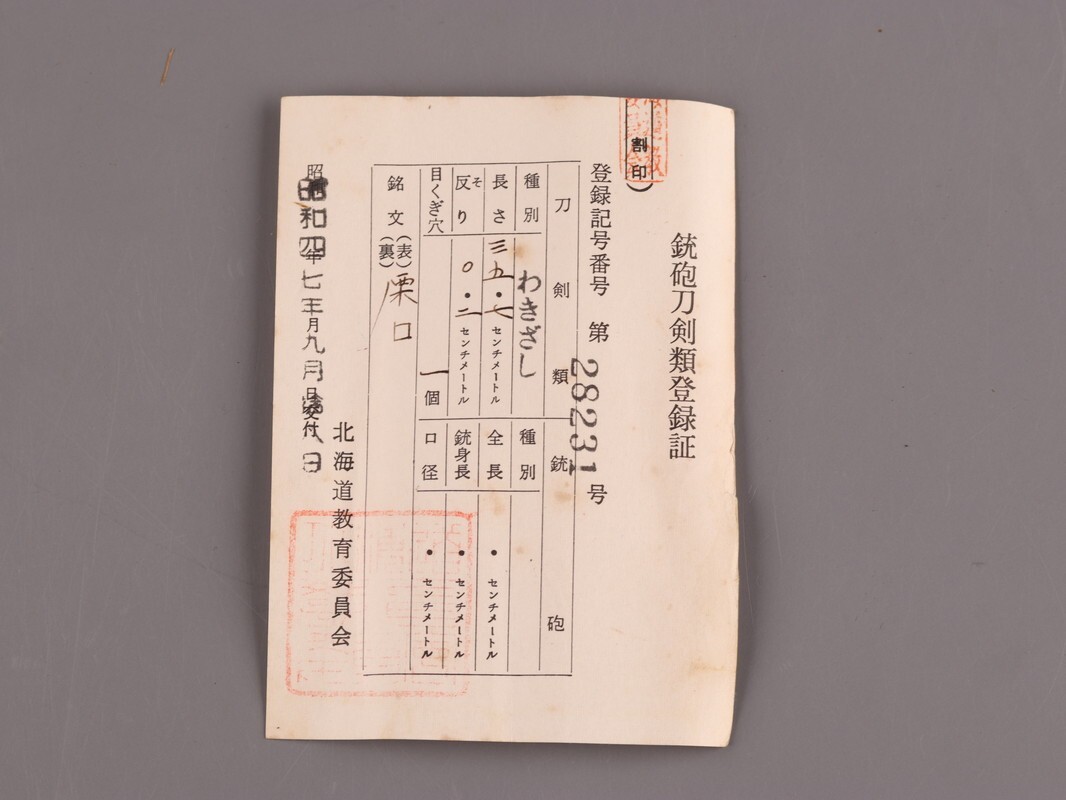 割印)
銃砲刀剣類登録証
登録記号番号 第 28231 号
刀剣類
種別 わきざし
長さ 三五・七 センチメートル
反り 〇・二 センチメートル
そ
目くぎ穴 一 個
銃砲
種別
全長 ・ センチメートル
銃身長 ・ センチメートル
口径 ・ センチメートル
銘文 (表) (裏) 栗口
北海道教育委員会
昭和四七年九月 日交付